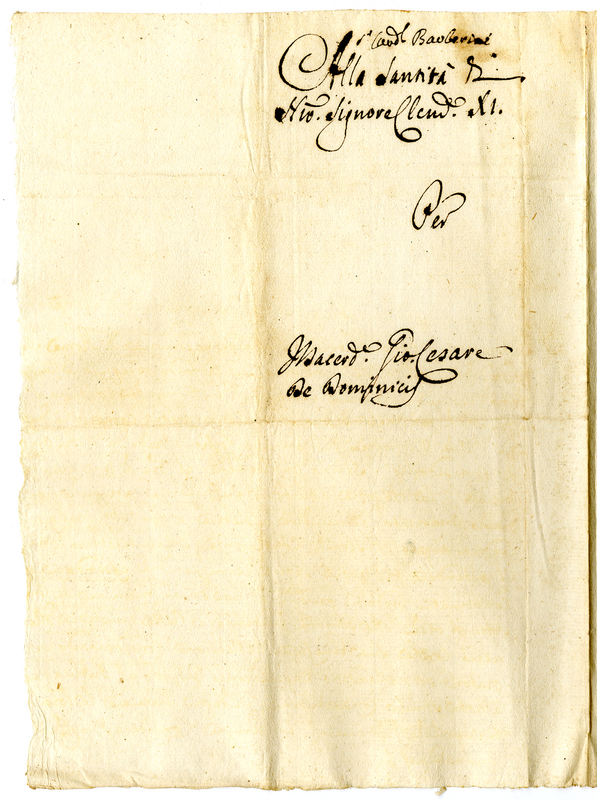 Card.l Barberini
Alla Santità di
N.ro Signore Clem.e XI.
Per
Gio. Cesare
De Dominicis